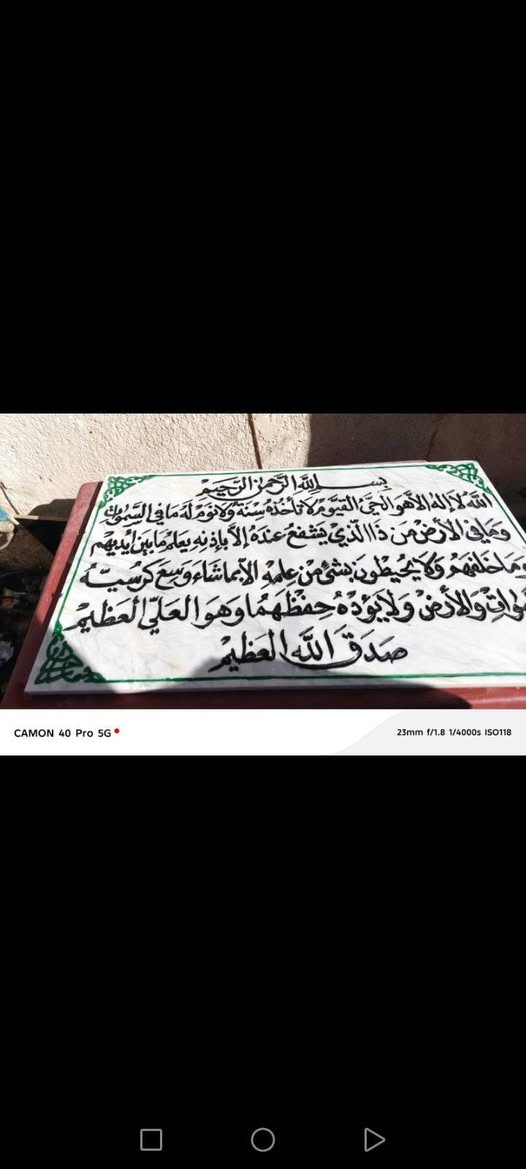 بسم الله الرحمن الرحيم
الله لا إله إلا هو الحي القيوم لا تأخذه سنة ولا نوم له ما في السموات
وما في الأرض من ذا الذي يشفع عنده إلا بإذنه يعلم ما بين أيديهم
وما خلفهم ولا يحيطون بشئ من علمه إلا بما شاء وسع كرسيه
والأرض ولا يؤده حفظهما وهو العلي العظيم
صدق الله العظيم
CAMON 40 Pro 5G
23mm f/1.8 1/4000s ISO118